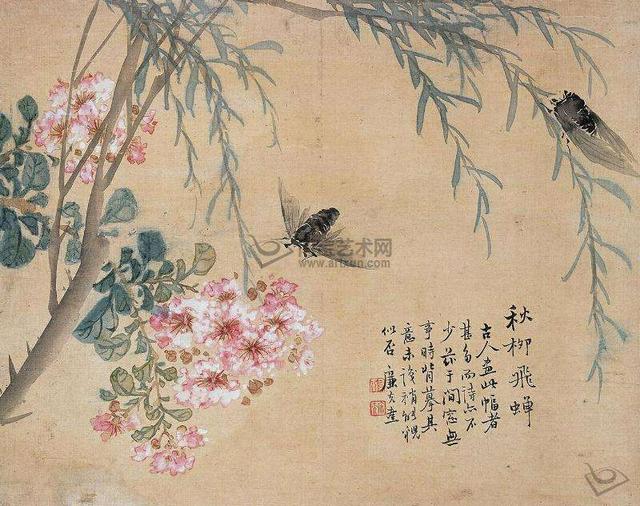 秋柳飛蟬
古人畫此幅者
甚多而詩亦不
少前于間窓無
事時背摹其
意未後稍能
似否
艺术网
www.artxun.com